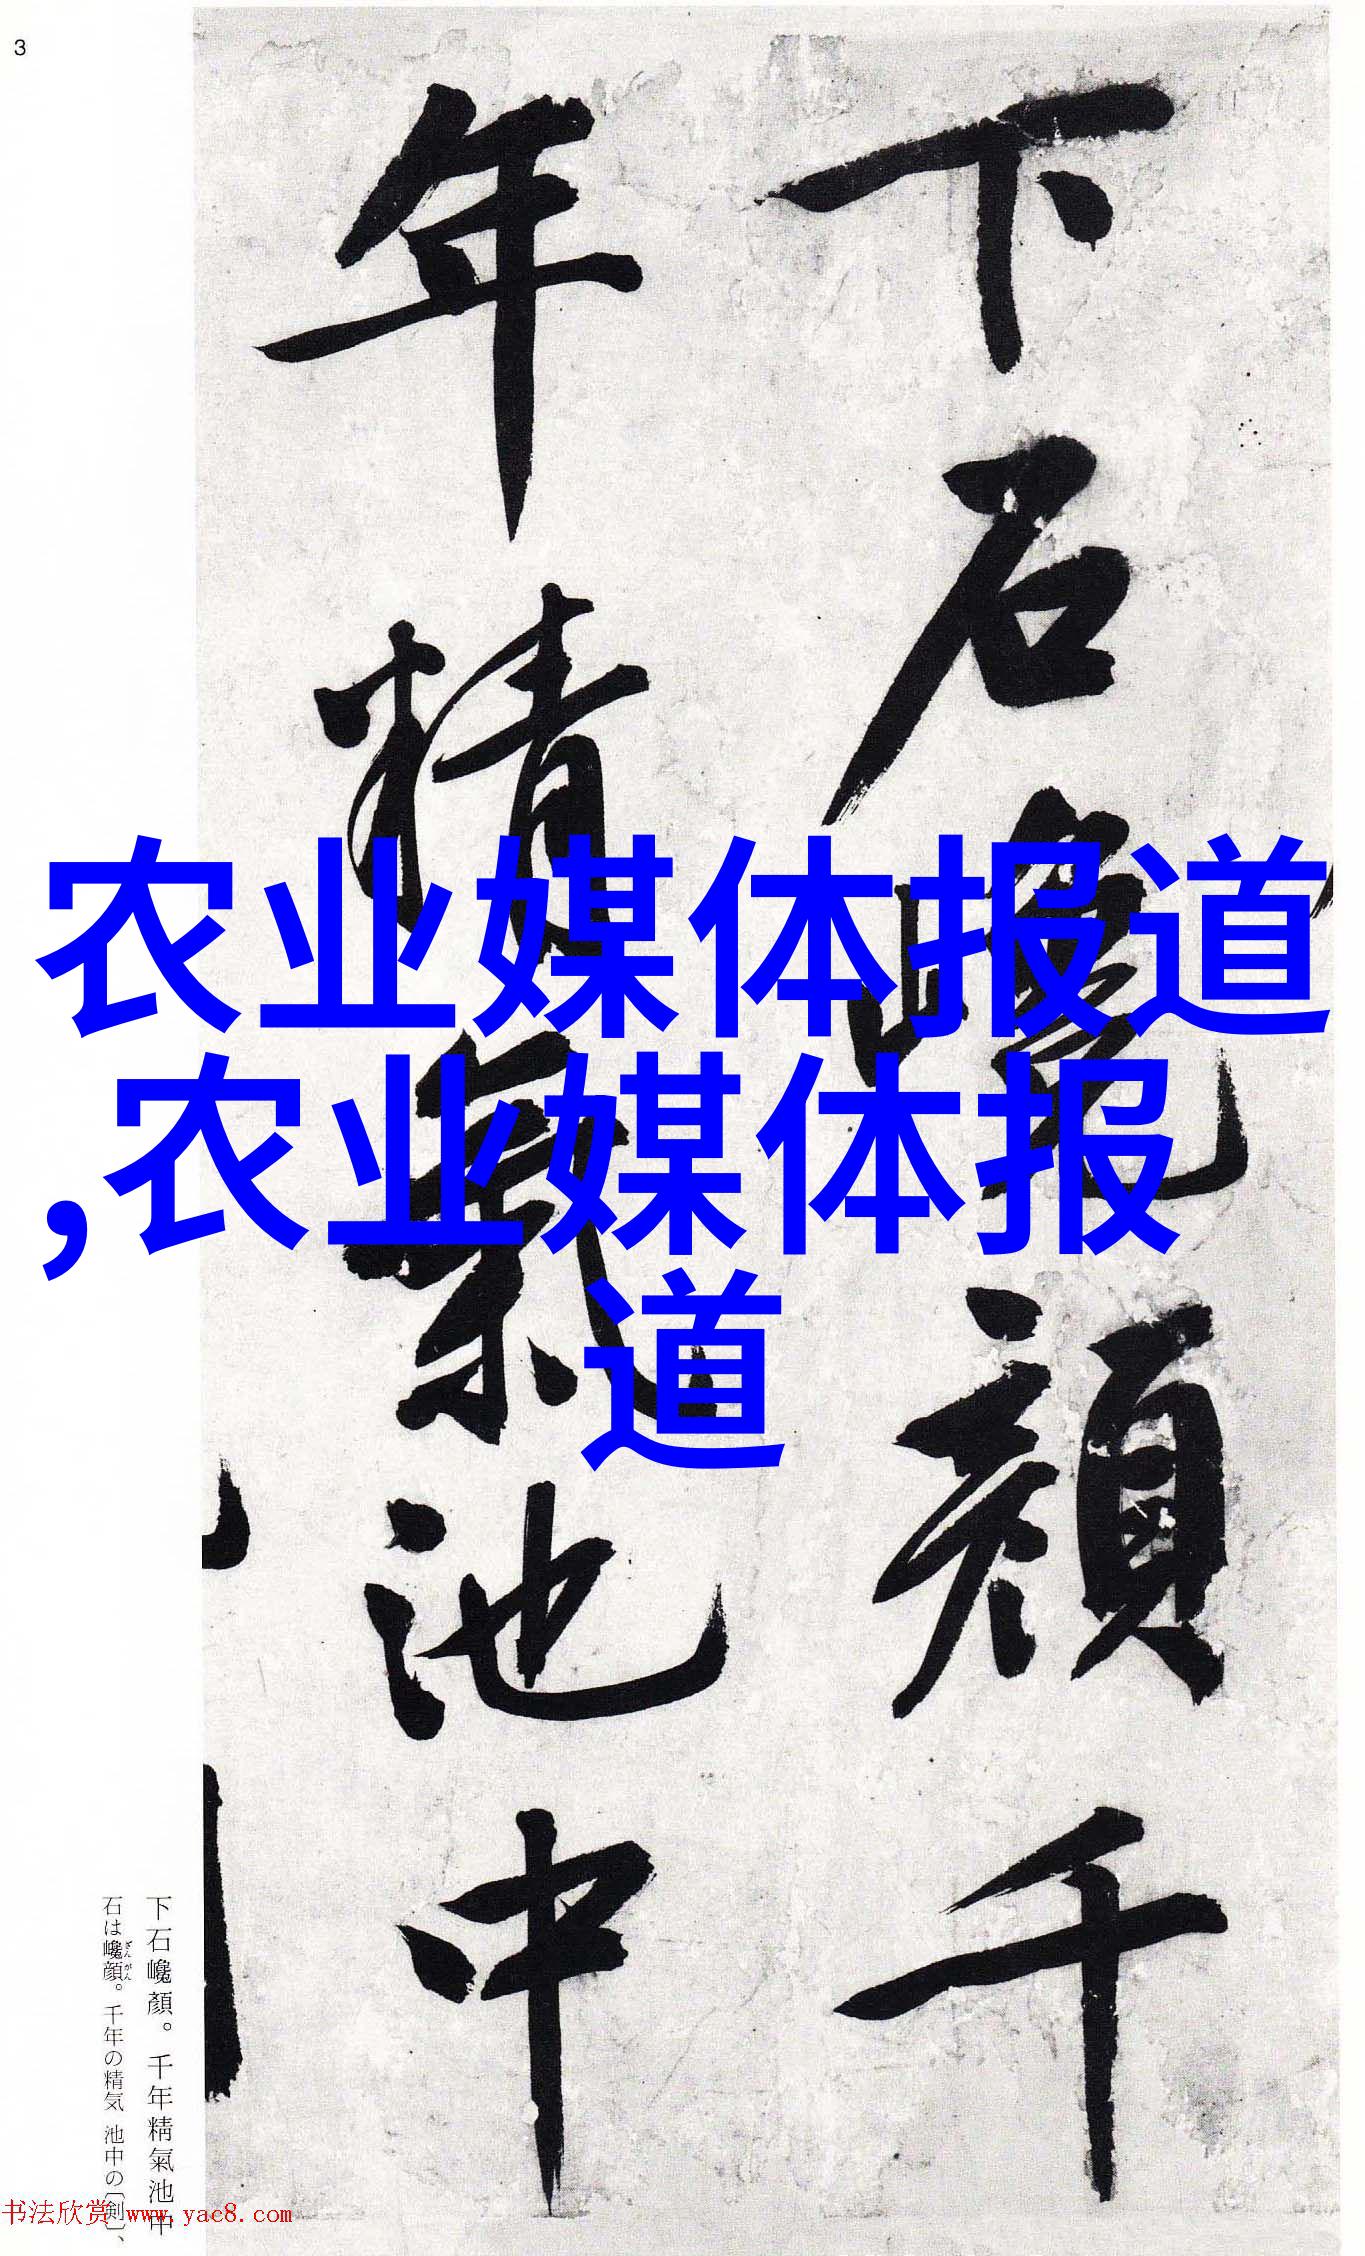 3
下石巉顔千
年精氣池中
农业媒体报道
,农业媒体报
道
下石巉顏。千年精氣池中
石は巉顔。千年の精気 池中の〔剣〕、
ざんがん
书法欣赏 www.yac8.com